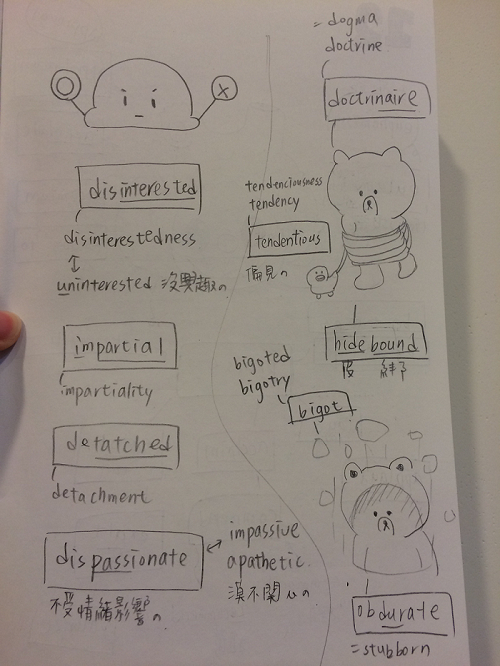 disinterested
disinterestedness
↕
uninterested 沒興趣の
impartial
impartiality
detatched
detachment
dispassionate
不受情緒影響の
↔ impassive
apathetic
漠不關心の
= dogma
doctrine
doctrinaire
tendenciousness
tendency
tendentious
偏見の
hidebound
綁
bigoted
bigotry
bigot
obdurate
= stubborn